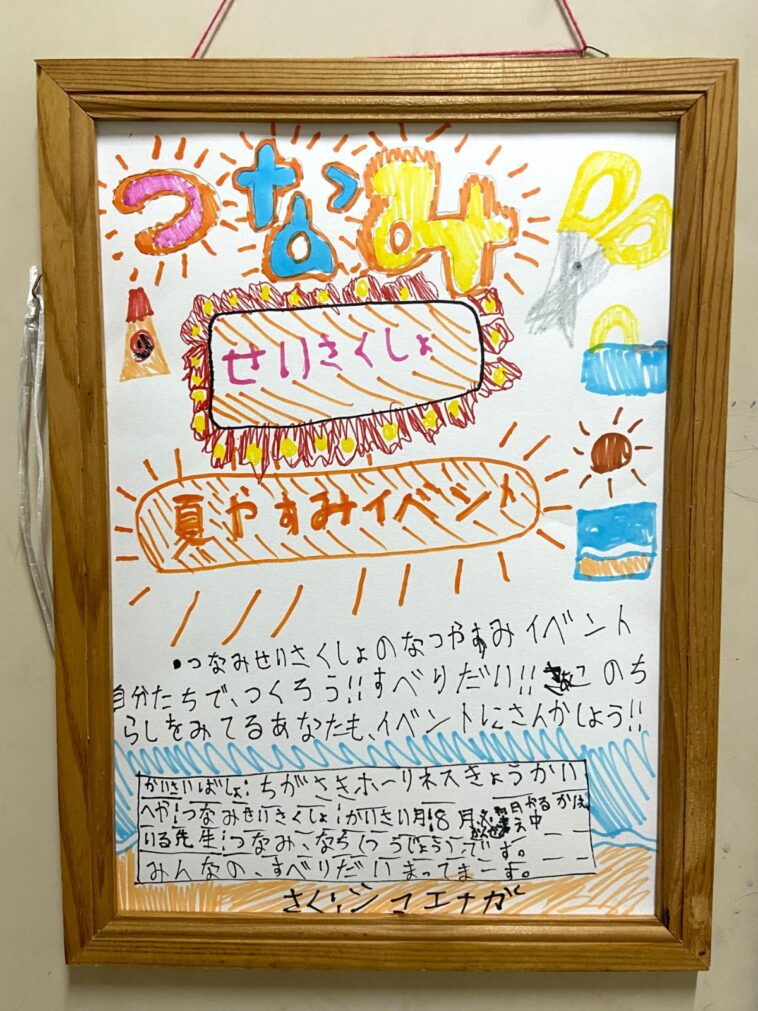 つなみ
せいさくしょ
夏やすみイベント
・つなみせいさくしょのなつやすみイベント
自分たちで、つくろう!!すべりだい!!このち
らしをみてるあなたも、イベントにさんかしよう!!
かいさいばしょ:ちがさきホーリネスきょうかい
へや:つなみせいさくしょ:かいさい月:8月
いる先生:つなみ、なら(つうじょう)です。
みんなの、すべりだいまってまーす。
さく:シマエナガ